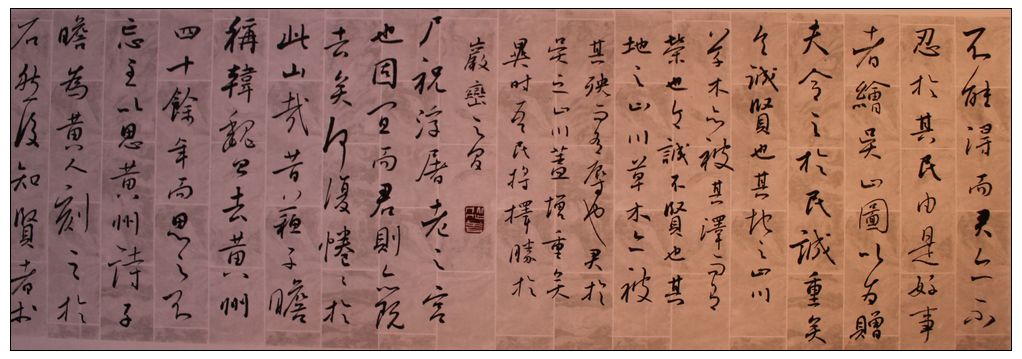 不能得而君亦不
忍於其民由是好事
者繪吳山圖以為贈
夫令之於民誠重矣
令誠賢也其地之山川
草木亦被其澤而有
榮也令誠不賢也其
地之山川草木亦被
其殃而有辱也君於
吳之山川蓋增重矣
異時吾民將擇勝於
巖巒之間
尸祝浮屠老之宮
也固宜而君則亦既
去矣何復惓惓於
此山哉昔蘇子瞻
稱韓魏公去黃州
四十餘年而思之不
忘至以思黃州詩子
瞻為黃人刻之於
石然後知賢者於